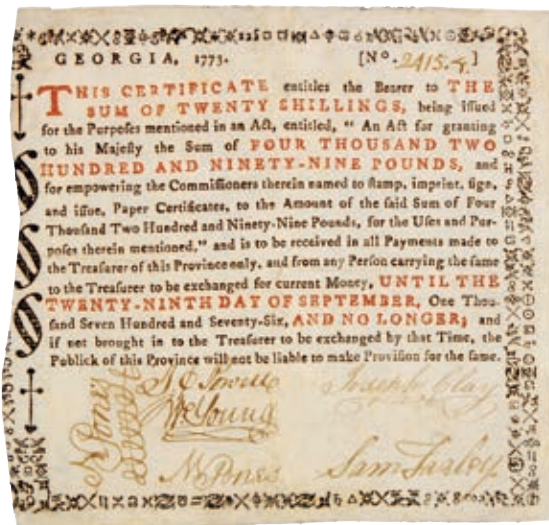 GEORGIA, 1773. [No. 2415.4.]
THIS CERTIFICATE entitles the Bearer to THE
SUM OF TWENTY SHILLINGS, being iſſued
for the Purpoſes mentioned in an Act, entitled, “ An Act for granting
to his Majeſty the Sum of FOUR THOUSAND TWO
HUNDRED AND NINETY-NINE POUNDS, and
for empowering the Commiſſioners therein named to ſtamp, imprint, ſign,
and iſſue, Paper Certificates, to the Amount of the ſaid Sum of Four
Thouſand Two Hundred and Ninety-Nine Pounds, for the Uſes and Pur-
poſes therein mentioned,” and is to be received in all Payments made to
the Treaſurer of this Province only, and from any Perſon carrying the ſame
to the Treaſurer to be exchanged for current Money, UNTIL THE
TWENTY-NINTH DAY OF SEPTEMBER, One Thou-
ſand Seven Hundred and Seventy-Six, AND NO LONGER; and
if not brought in to the Treaſurer to be exchanged by that Time, the
Publick of this Province will not be liable to make Proviſion for the ſame.
Joseph Clay
Wm Young
N Jones
Sam Farley